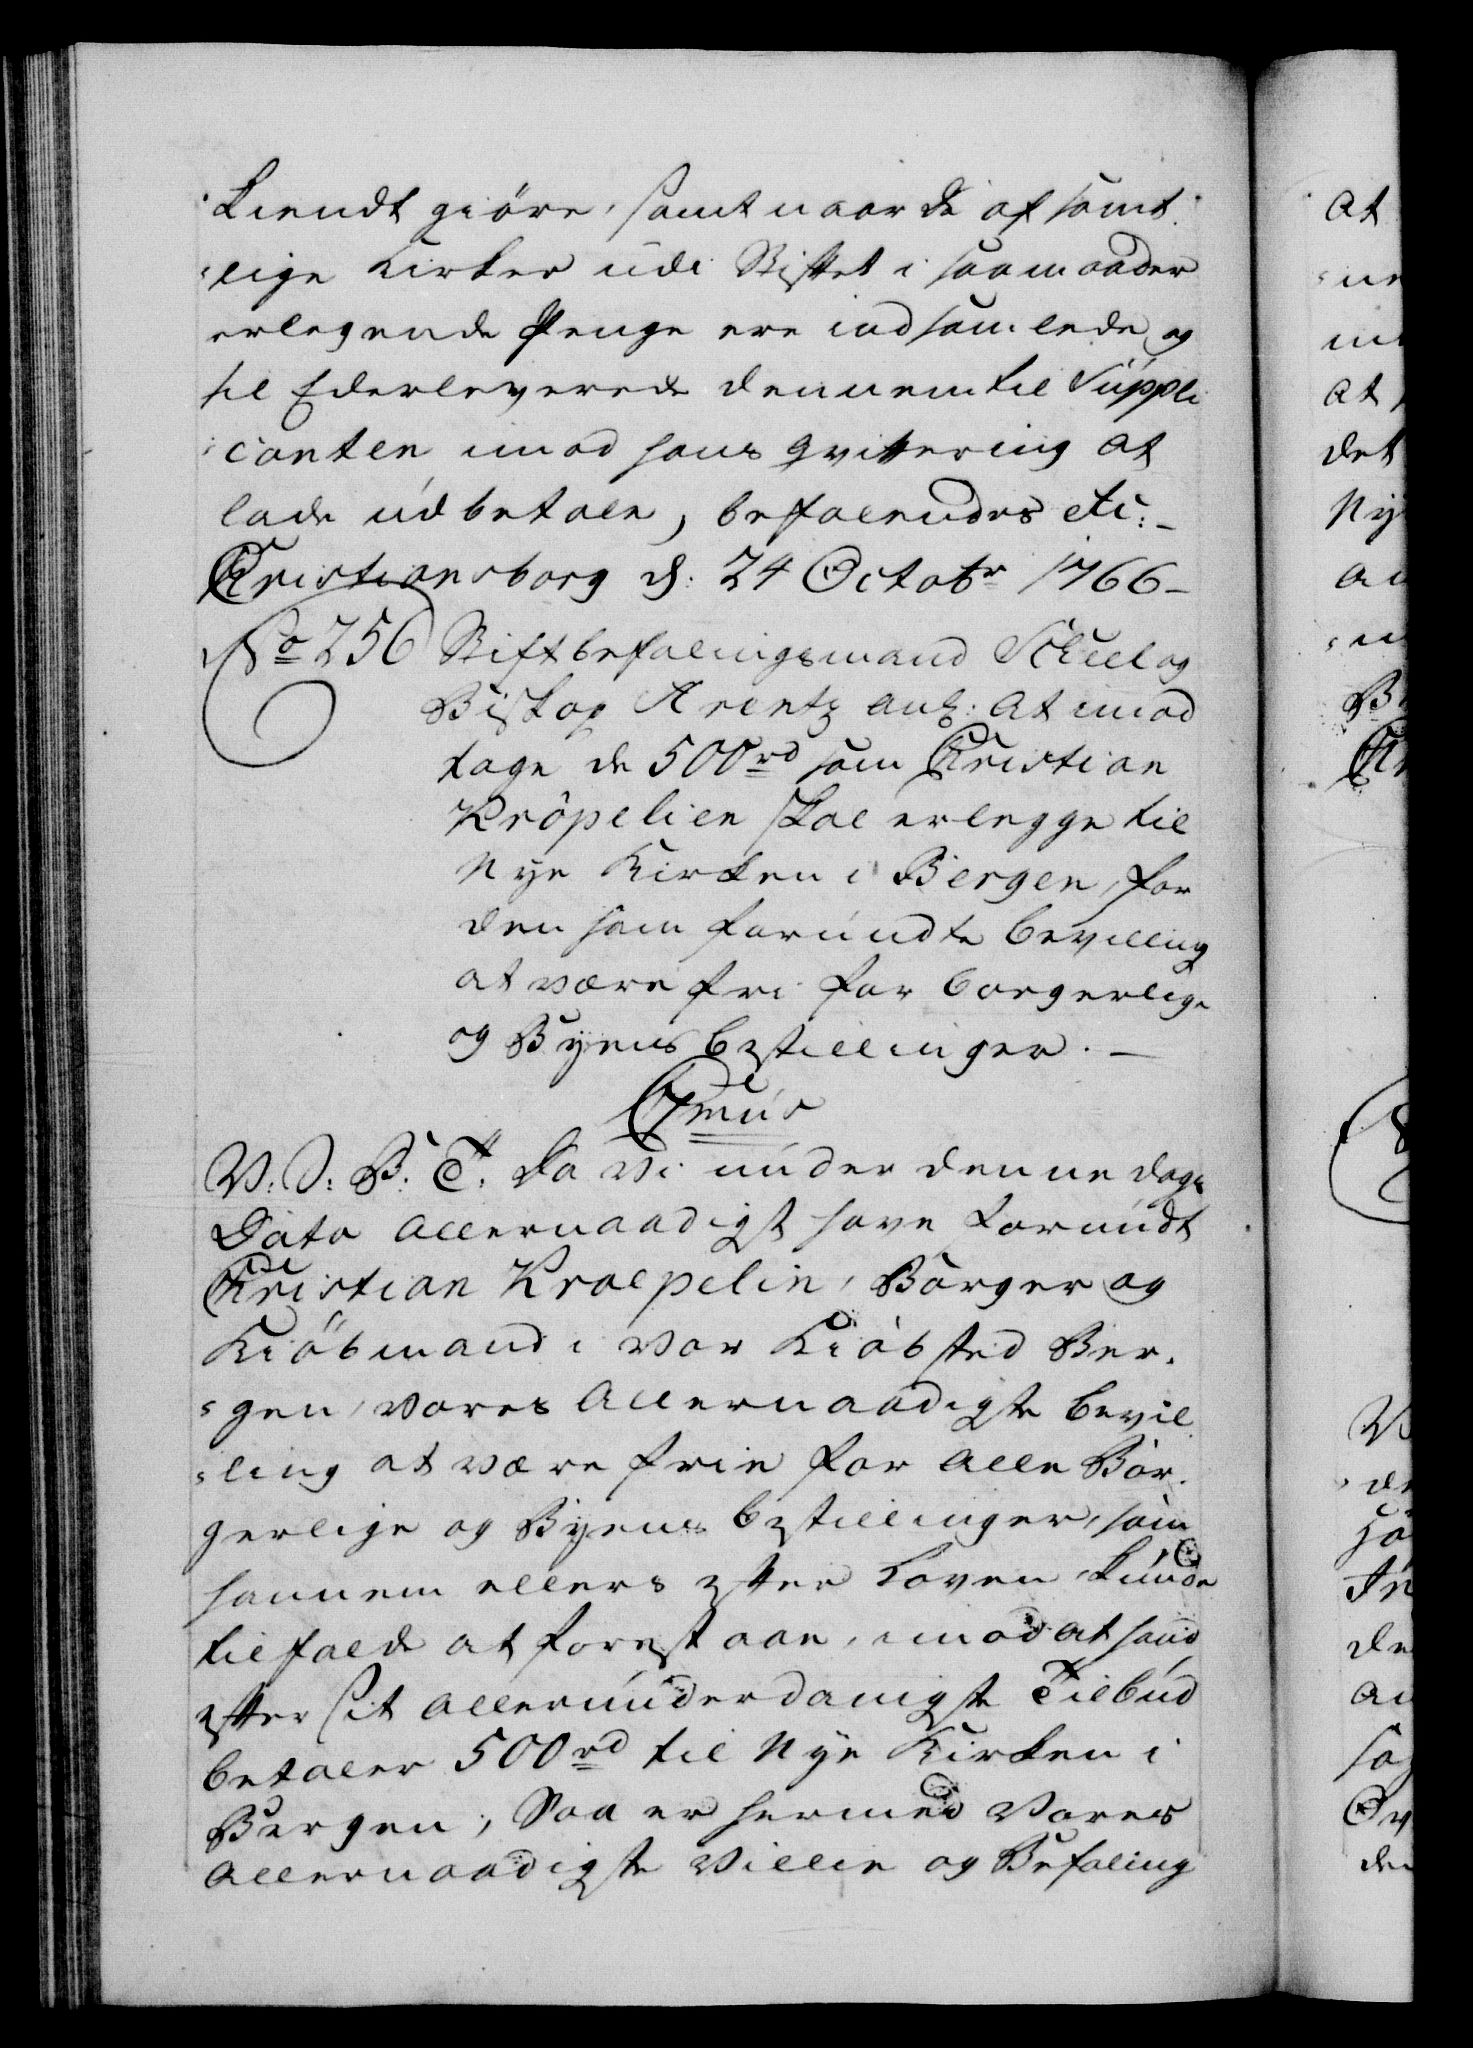 kiendt giöre, samt naar de af samt
lige Kirker udi Stiftet i saamaader
erlegende Penge ere indsamlede og
til Eder leverede dennem til Suppli
canten imod hans qvittering at
lade udbetale, befalendes etc:
Christiansborg d: 24 Octobr 1766
No 256 Stiftbefalingsmand Scheel og
Biskop Arentz anl: at imod
tage de 500 rd som Christian
Kröpelien skal erlegge til
Nye Kirken i Bergen, for
den ham forundte bevilling
at være fri for borgerlige
og Byens bestillinger.
C7mus
V. S. B. T. Da Vi under denne Dags
Dato allernaadigst have forundt
Christian Kroepelin, Borger og
Kiöbmand i vor Kiöbsted Ber-
gen, vores allernaadigste bevil
ling at være frie for alle Bor-
gerlige og Byens bestillinger, som
hannem ellers efter Loven kunde
tilfalde at forestaae, imod at hand
efter sit allerunderdanigste Tilbud
betaler 500 rd til Nye Kirken i
Bergen; Saa er hermed vores
allernaadigste villie og Befaling